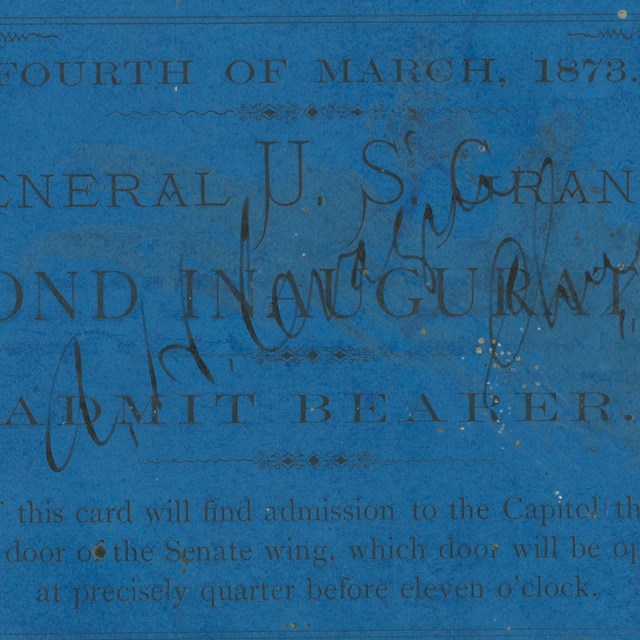 FOURTH OF MARCH, 1873.
ENERAL U. S. GRAN
OND INAUGURATI
ADMIT BEARER.
this card will find admission to the Capitol th
door of the Senate wing, which door will be op
at precisely quarter before eleven o'clock.